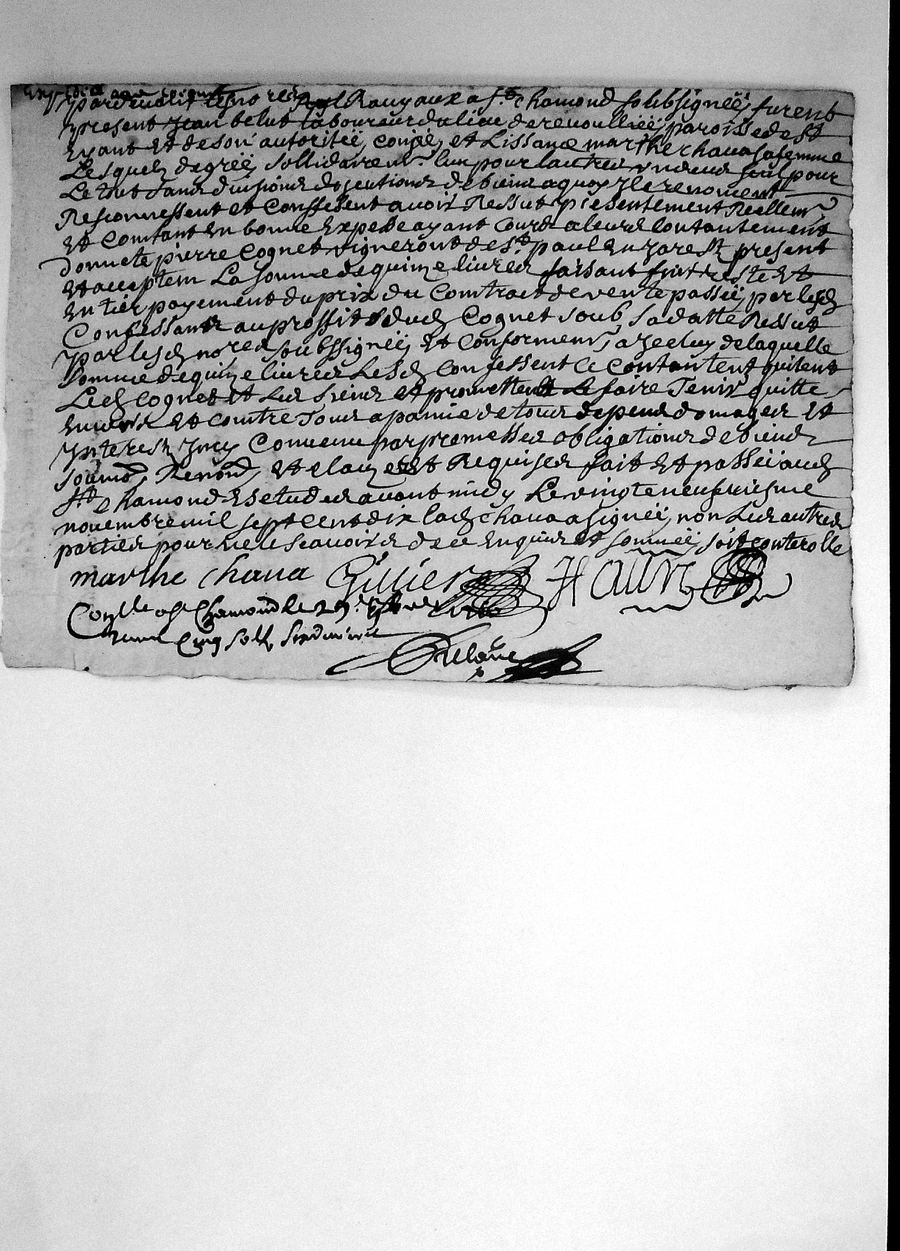 Expédié aud Cognet
Pardevant le no.re Royal Ravyaux a St. Chamond soubsigneé furent
present Jean belut laboureur du lieu de revoulliéé paroisse de St
Et de son autoritéé, congéé, et Lissance marthe chava sa femme
Lesquels de gréé sollidairemt. lun pour lautre un deux seul pour
Le tout sans divisions dissentions de biens a quoy Ils renoncent
Reconnessent et Conffessent avoir Ressut presentement Reellemt
Et Comtant En bonne Expece ayant Cours a leur Contantement
donnete pierre Cognet vigneront de St. paul En Jarest present
Et acceptem La somme de quinze livres faisant fint reste Et
Entier payement du prix du Comtract de vente passéé par lesd
Confessants au proffit dud Cognet soub sa datte Ressut
par lesd no.re soubssignéé Et Conformemt a Iceluy de laquelle
somme de quinze livres Lesd Confessent Ce Contantent quitent
Led Cognet Et Les siens Et promettent Le faire Tenir quitte
Envers Et Contre Tous a painne de tous depens domages Et
Interest Convenu par promesses obligations de biens
soumis, Renon, Et clauzes Requises fait Et passéé aud
St. Chamond Estude avant midy Le vingt neufviesme
novembre mil sept cent dix lad chava a signéé non Les autres
parties pour ne le scavoir de ce Enquis Et sommés soit conterolle
marthe chava Gillier
Conlle a St Chamond le 29e 9bre
Cinq sols